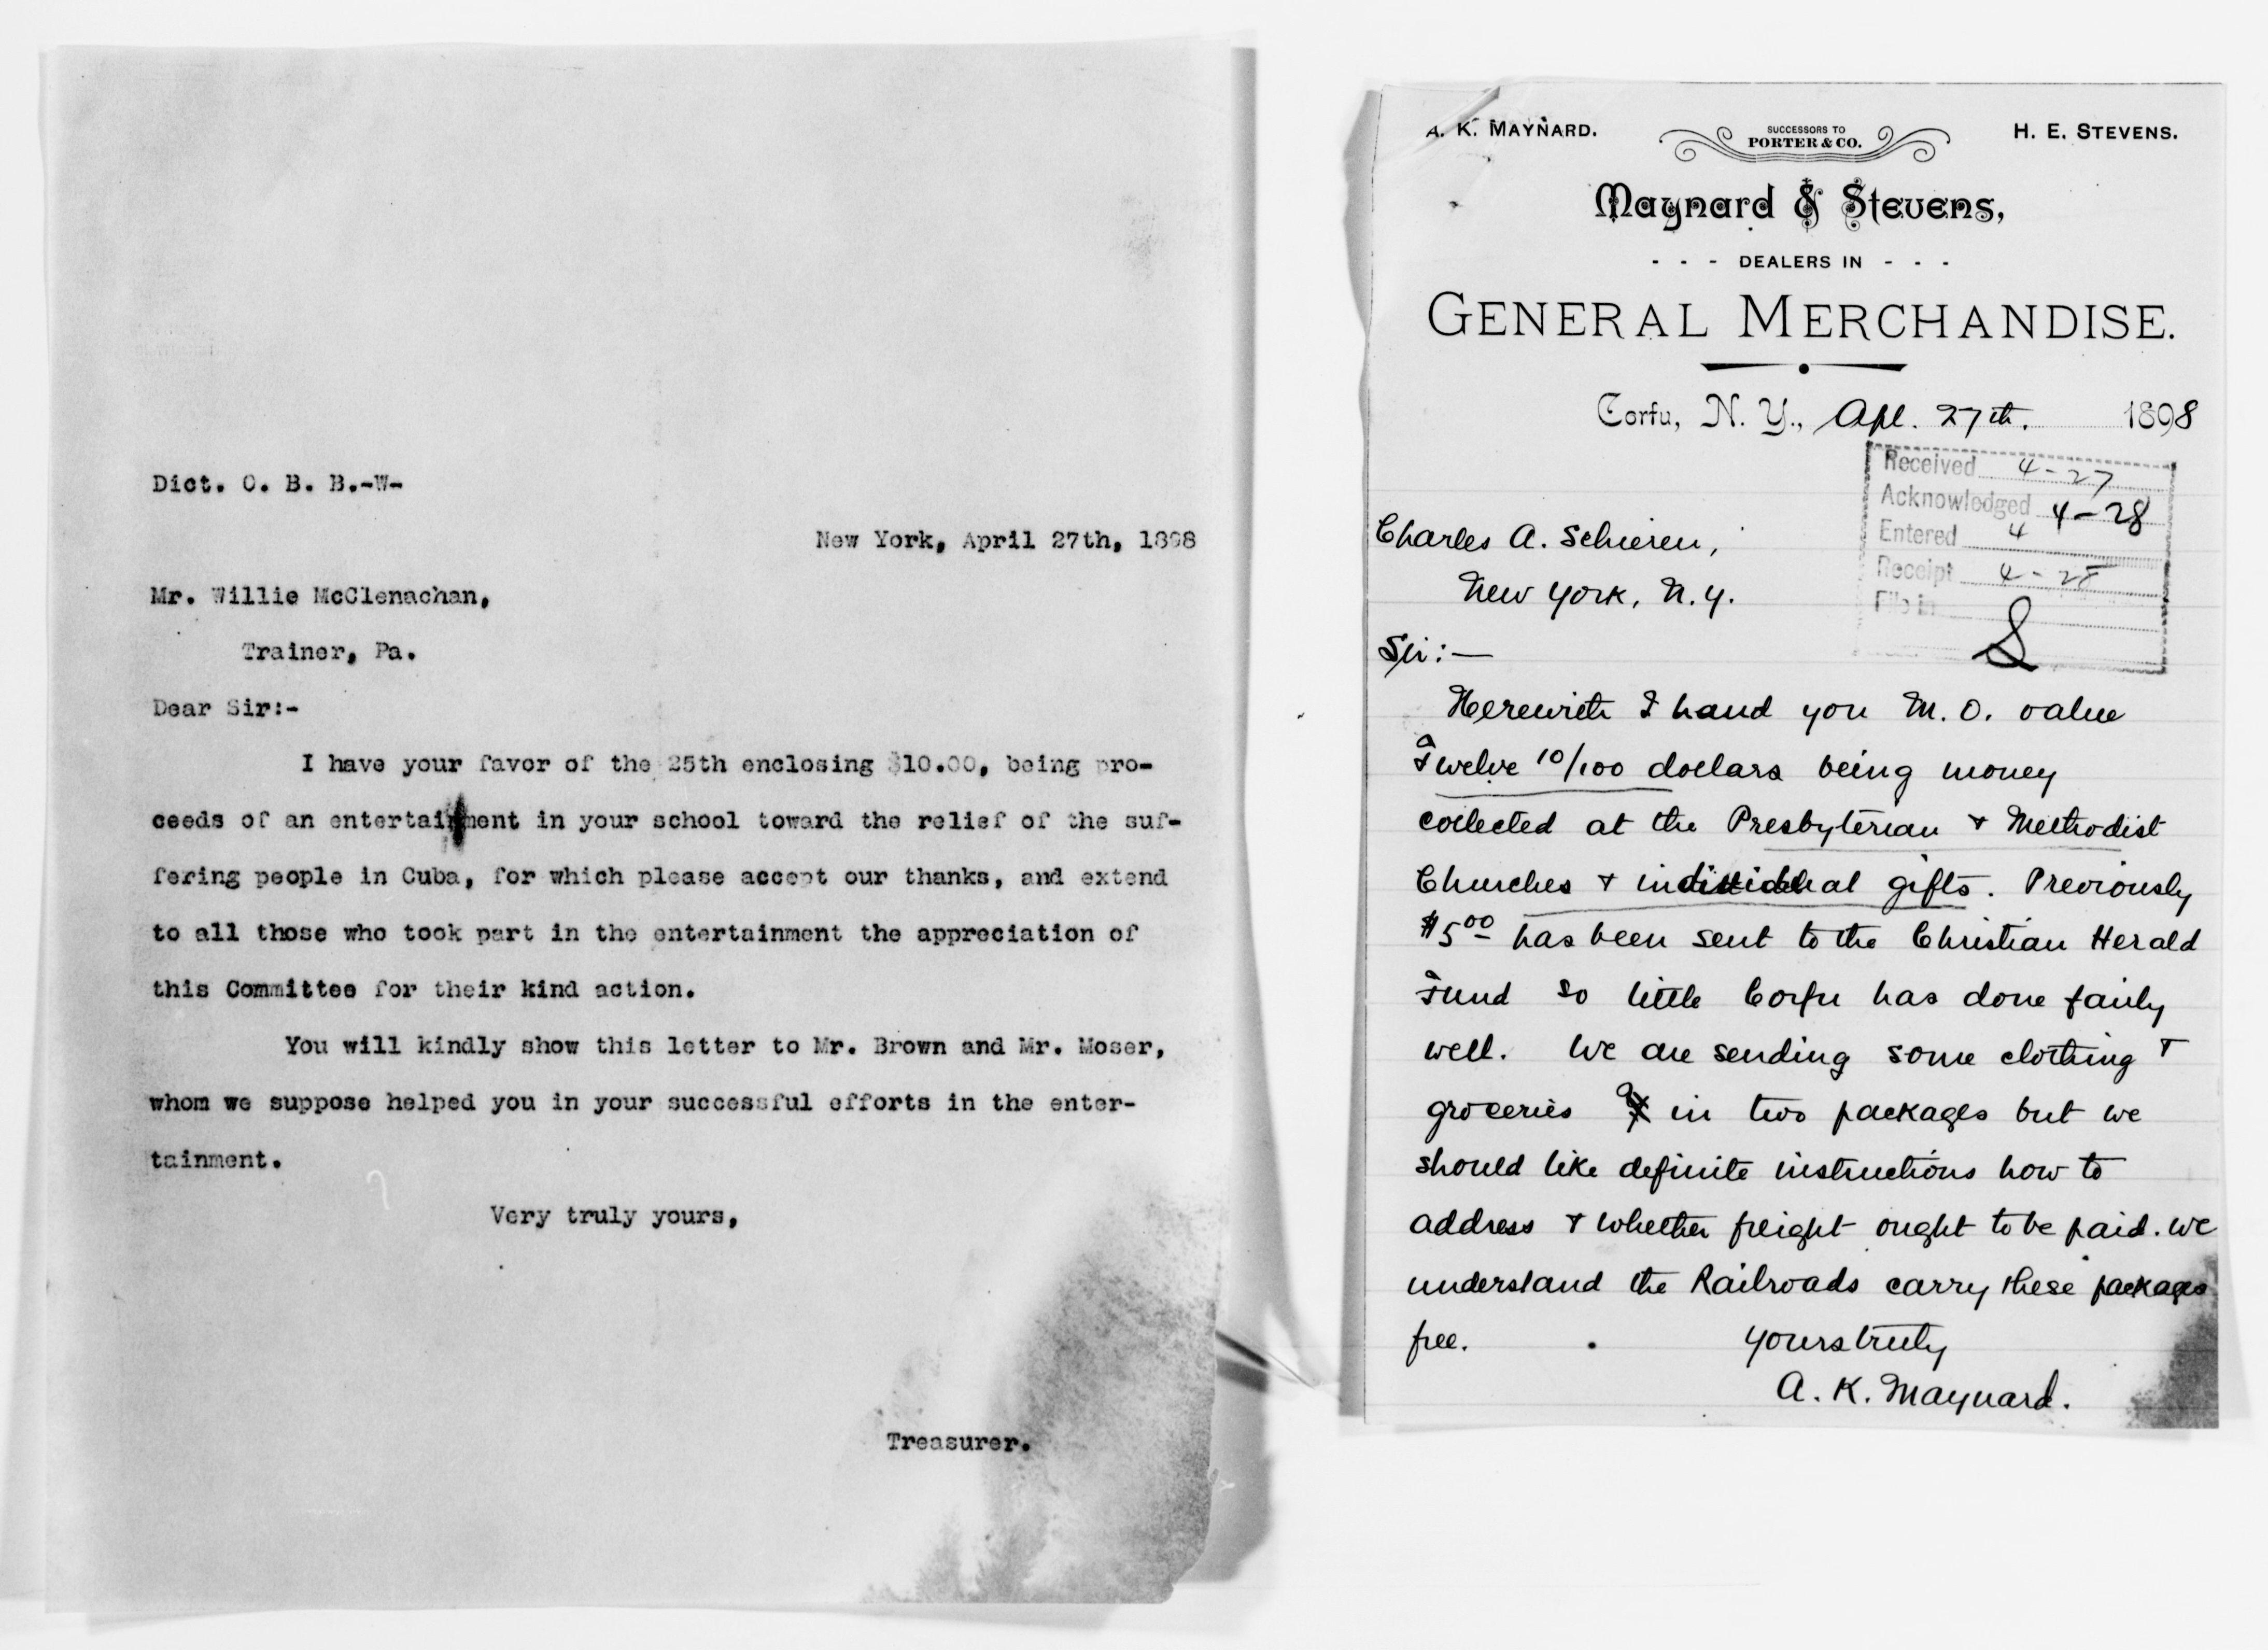 Dict. C. B. B.-W-
New York, April 27th, 1898
Mr. Willie McClenachan,
Trainer, Pa.
Dear Sir:-
I have your favor of the 25th enclosing $10.00, being pro-
ceeds of an entertainment in your school toward the relief of the suf-
fering people in Cuba, for which please accept our thanks, and extend
to all those who took part in the entertainment the appreciation of
this Committee for their kind action.
You will kindly show this letter to Mr. Brown and Mr. Moser,
whom we suppose helped you in your successful efforts in the enter-
tainment.
Very truly yours,
Treasurer.
A. K. MAYNARD.
SUCCESSORS TO
PORTER & CO.
H. E. STEVENS.
Maynard & Stevens,
- - - DEALERS IN - - -
GENERAL MERCHANDISE.
Corfu, N. Y., Apl. 27th. 1898
Received 4-27
Acknowledged 4-28
Entered 4
Receipt 4-28
File in
S
Charles A. Schieren,
New York, N.Y.
Sir:—
Herewith I hand you M. O. value
Twelve 10/100 dollars being money
collected at the Presbyterian & Methodist
Churches & individual gifts. Previously
$5.00 has been sent to the Christian Herald
Fund so little Corfu has done fairly
well. We are sending some clothing &
groceries in two packages but we
should like definite instructions how to
address & whether freight ought to be paid. We
understand the Railroads carry these packages
free. Yours truly
A. K. Maynard.